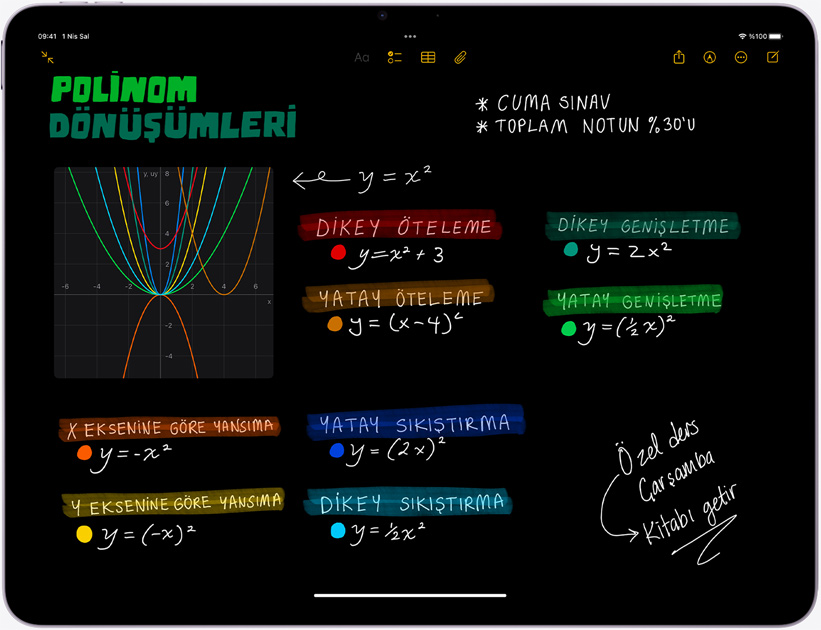 09:41 1 Nis Sal
%100
Aa
POLİNOM
DÖNÜŞÜMLERİ
* CUMA SINAV
* TOPLAM NOTUN %30'U
y, uy
8
6
4
2
-6 -4 -2 2 4 6
x
-2
-4
y = x²
DİKEY ÖTELEME
y=x²+3
DİKEY GENİŞLETME
y = 2x²
YATAY ÖTELEME
y = (x-4)²
YATAY GENİŞLETME
y=(½x)²
X EKSENİNE GÖRE YANSIMA
y=-x²
YATAY SIKIŞTIRMA
y = (2x)²
Y EKSENİNE GÖRE YANSIMA
y = (-x)²
DİKEY SIKIŞTIRMA
y=½x²
Özel ders
Çarşamba
Kitabı getir